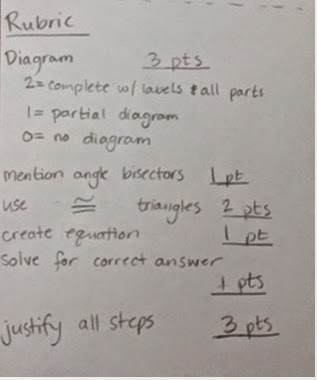 Rubric
Diagram 3 pts
2= complete w/ labels & all parts
1= partial diagram
0= no diagram
mention angle bisectors 1 pt
use ≅ triangles 2 pts
create equation 1 pt
solve for correct answer
1 pts
justify all steps 3 pts